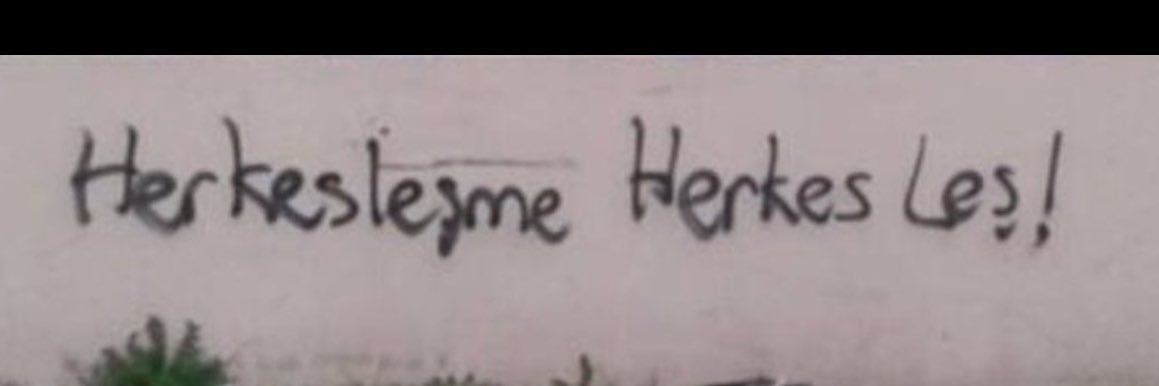 Herkesleşme Herkes Leş!